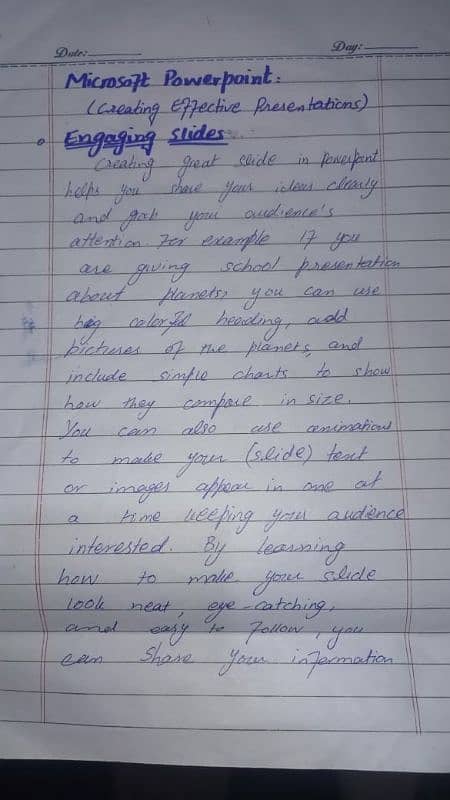 Date:
Day:
Microsoft Powerpoint:
(Creating Effective Presentations)
Engaging Slides
Creating great slide in powerpoint
helps you share your ideas clearly
and grab your audience's
attention. For example if you
are giving school presentation
about planets, you can use
big colorful heading, add
pictures of the planets, and
include simple charts to show
how they compare in size.
You can also use animations
to make your (slide) text
or images appear in one at
a time keeping your audience
interested. By learning
how to make your slide
look neat, eye-catching,
and easy to follow, you
can share your information